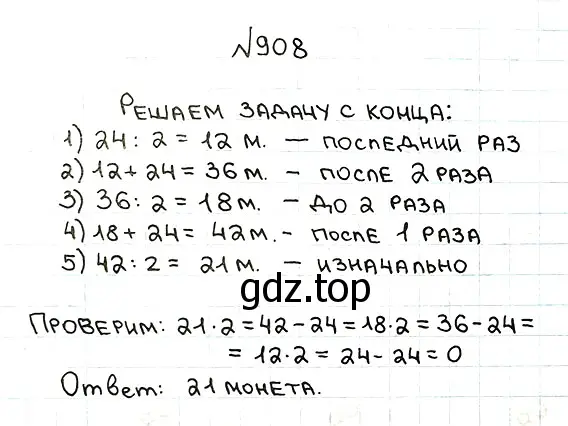 №908
Решаем задачу с конца:
1) 24 : 2 = 12 м. — последний раз
2) 12 + 24 = 36 м. — после 2 раза
3) 36 : 2 = 18 м. — до 2 раза
4) 18 + 24 = 42 м. - после 1 раза
5) 42 : 2 = 21 м. — изначально
gdz.top
Проверим: 21 · 2 = 42 - 24 = 18 · 2 = 36 - 24 =
= 12 · 2 = 24 - 24 = 0
Ответ: 21 монета.